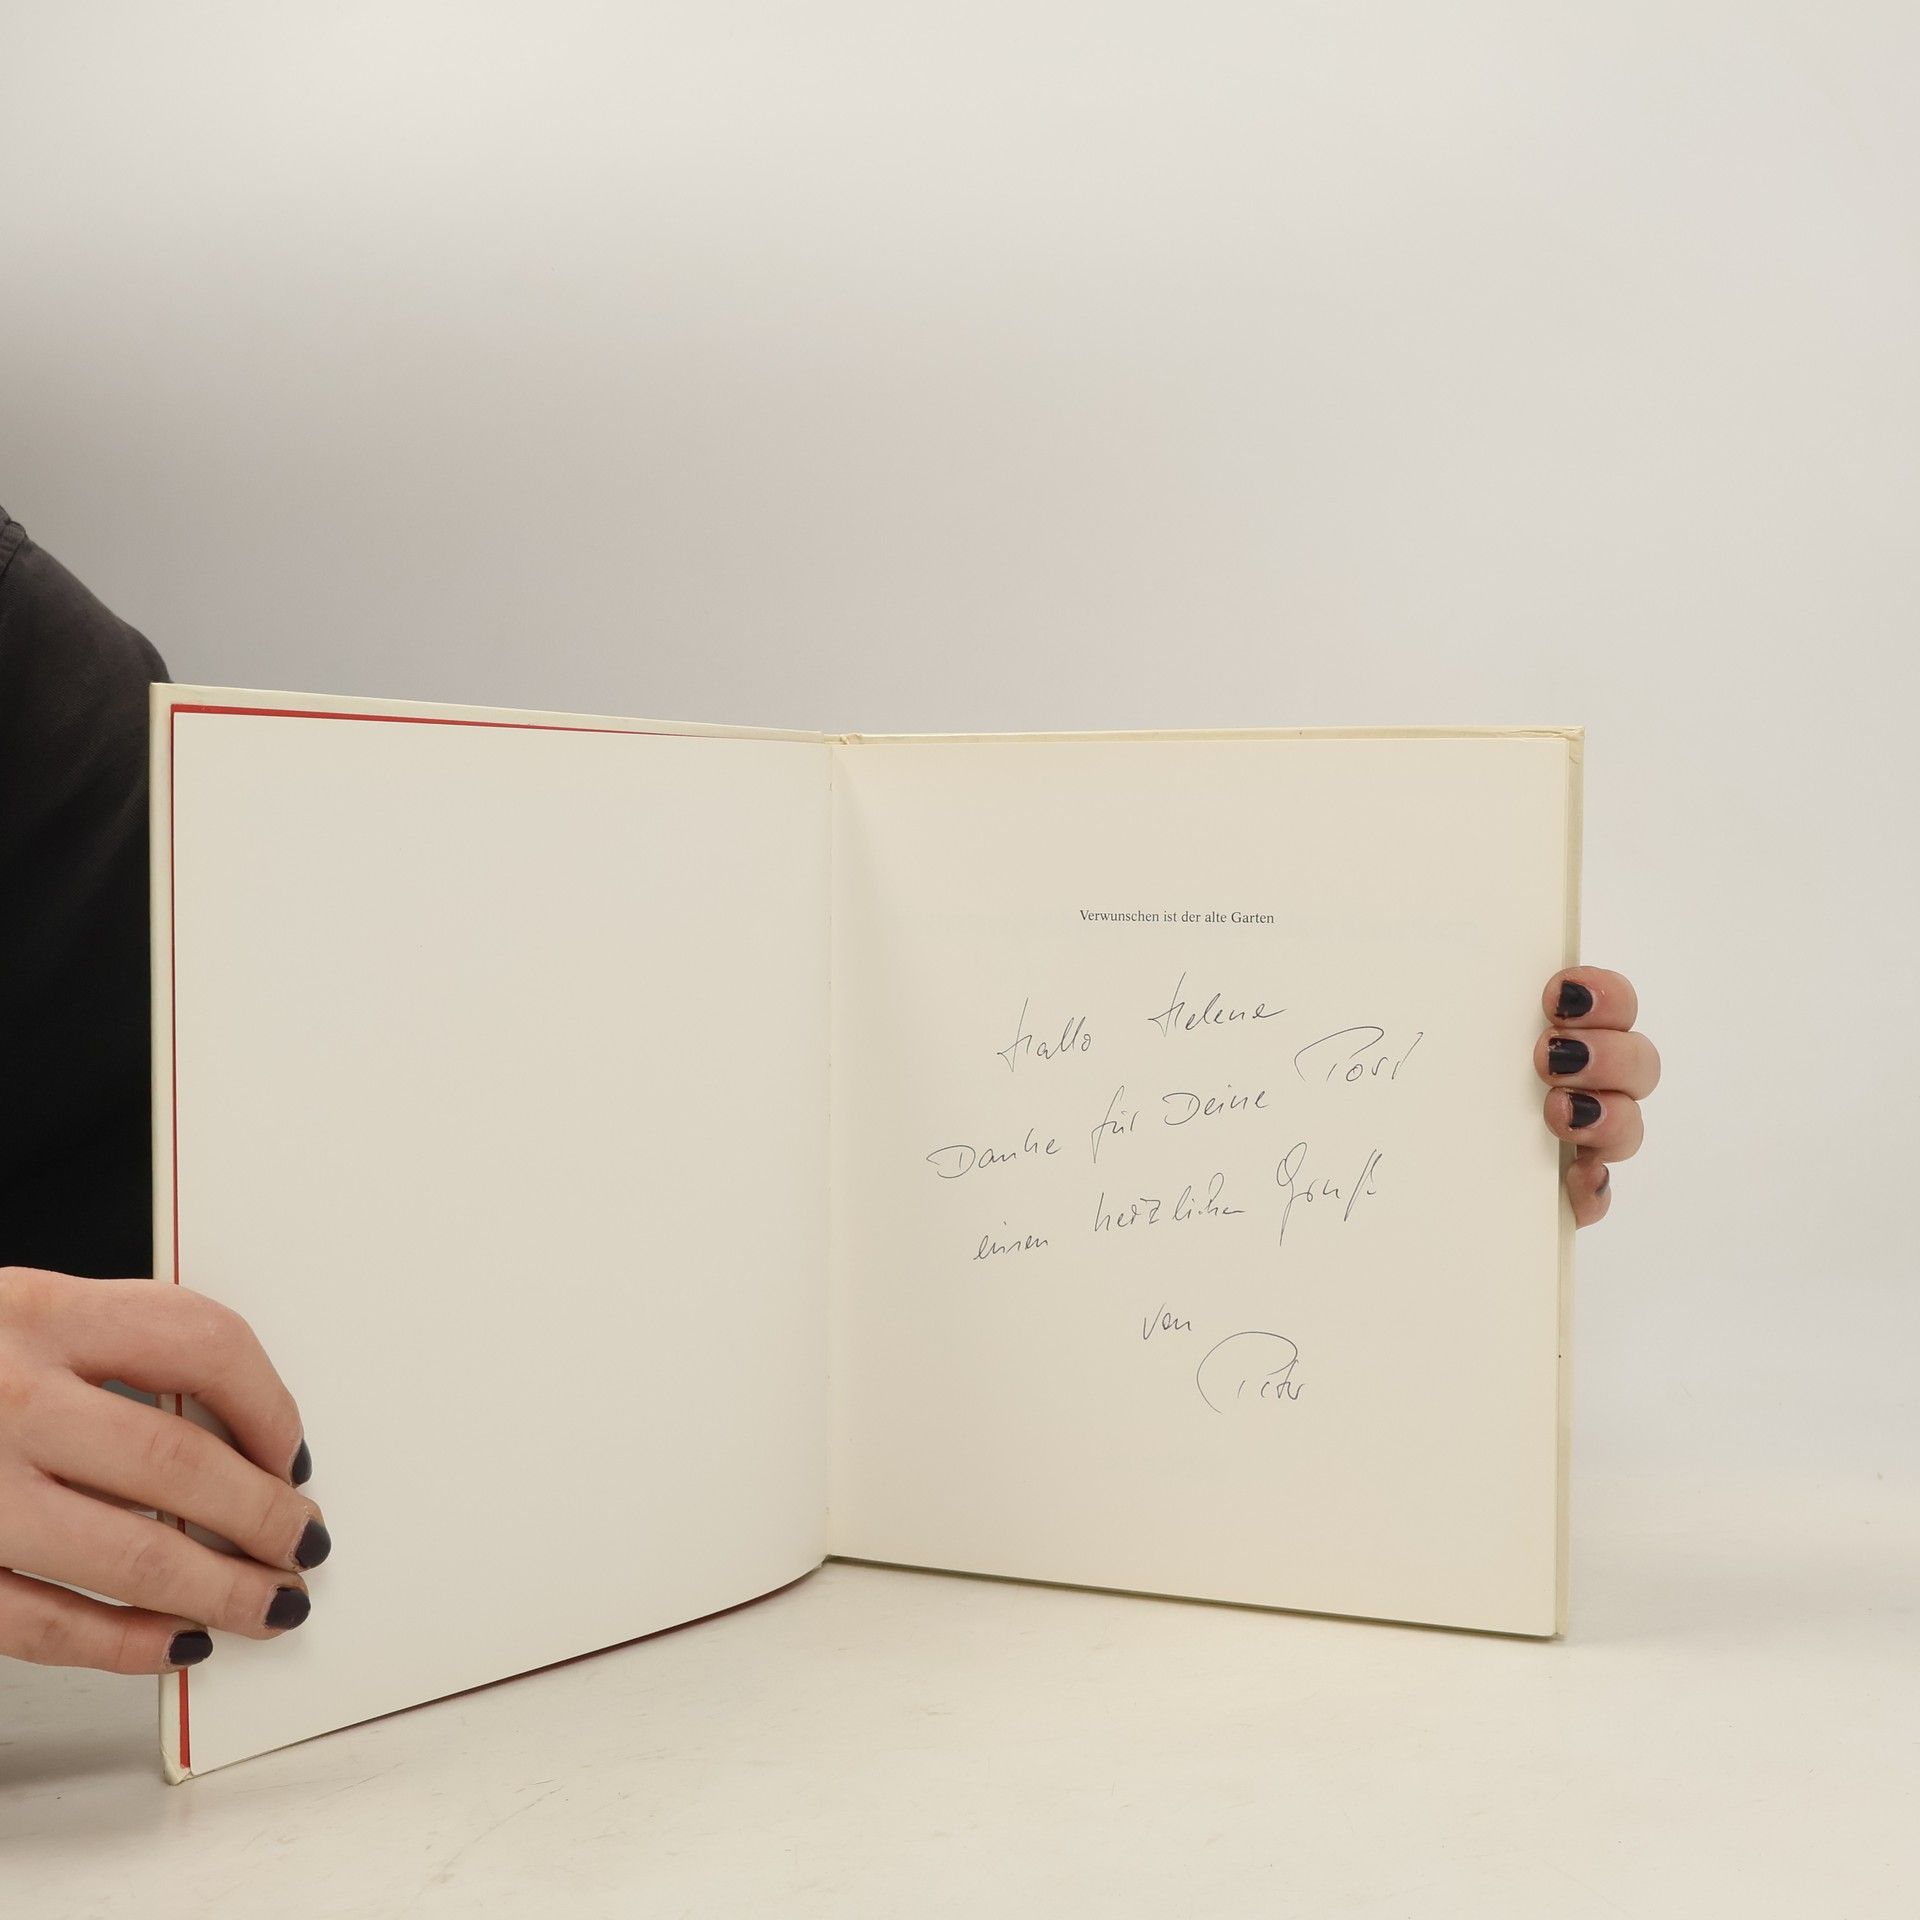 Verwunschen ist der alte Garten
Hallo Helene
Danke für Deine Post
einen herzlichen Gruß
von
Peter